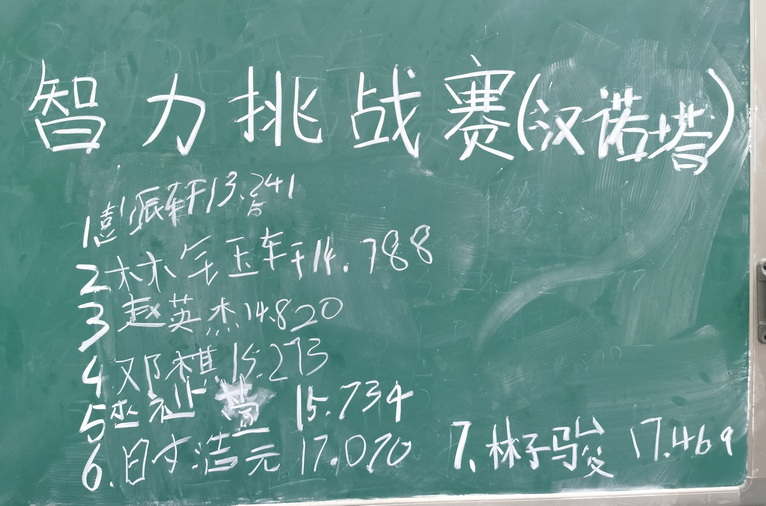 智力挑战赛(汉诺塔)
1彭振轩13.241
2林 玉轩14.788
3赵英杰14.820
4邓棋15.273
5 15.734
6.时浩元17.070
7.林子骏17.469